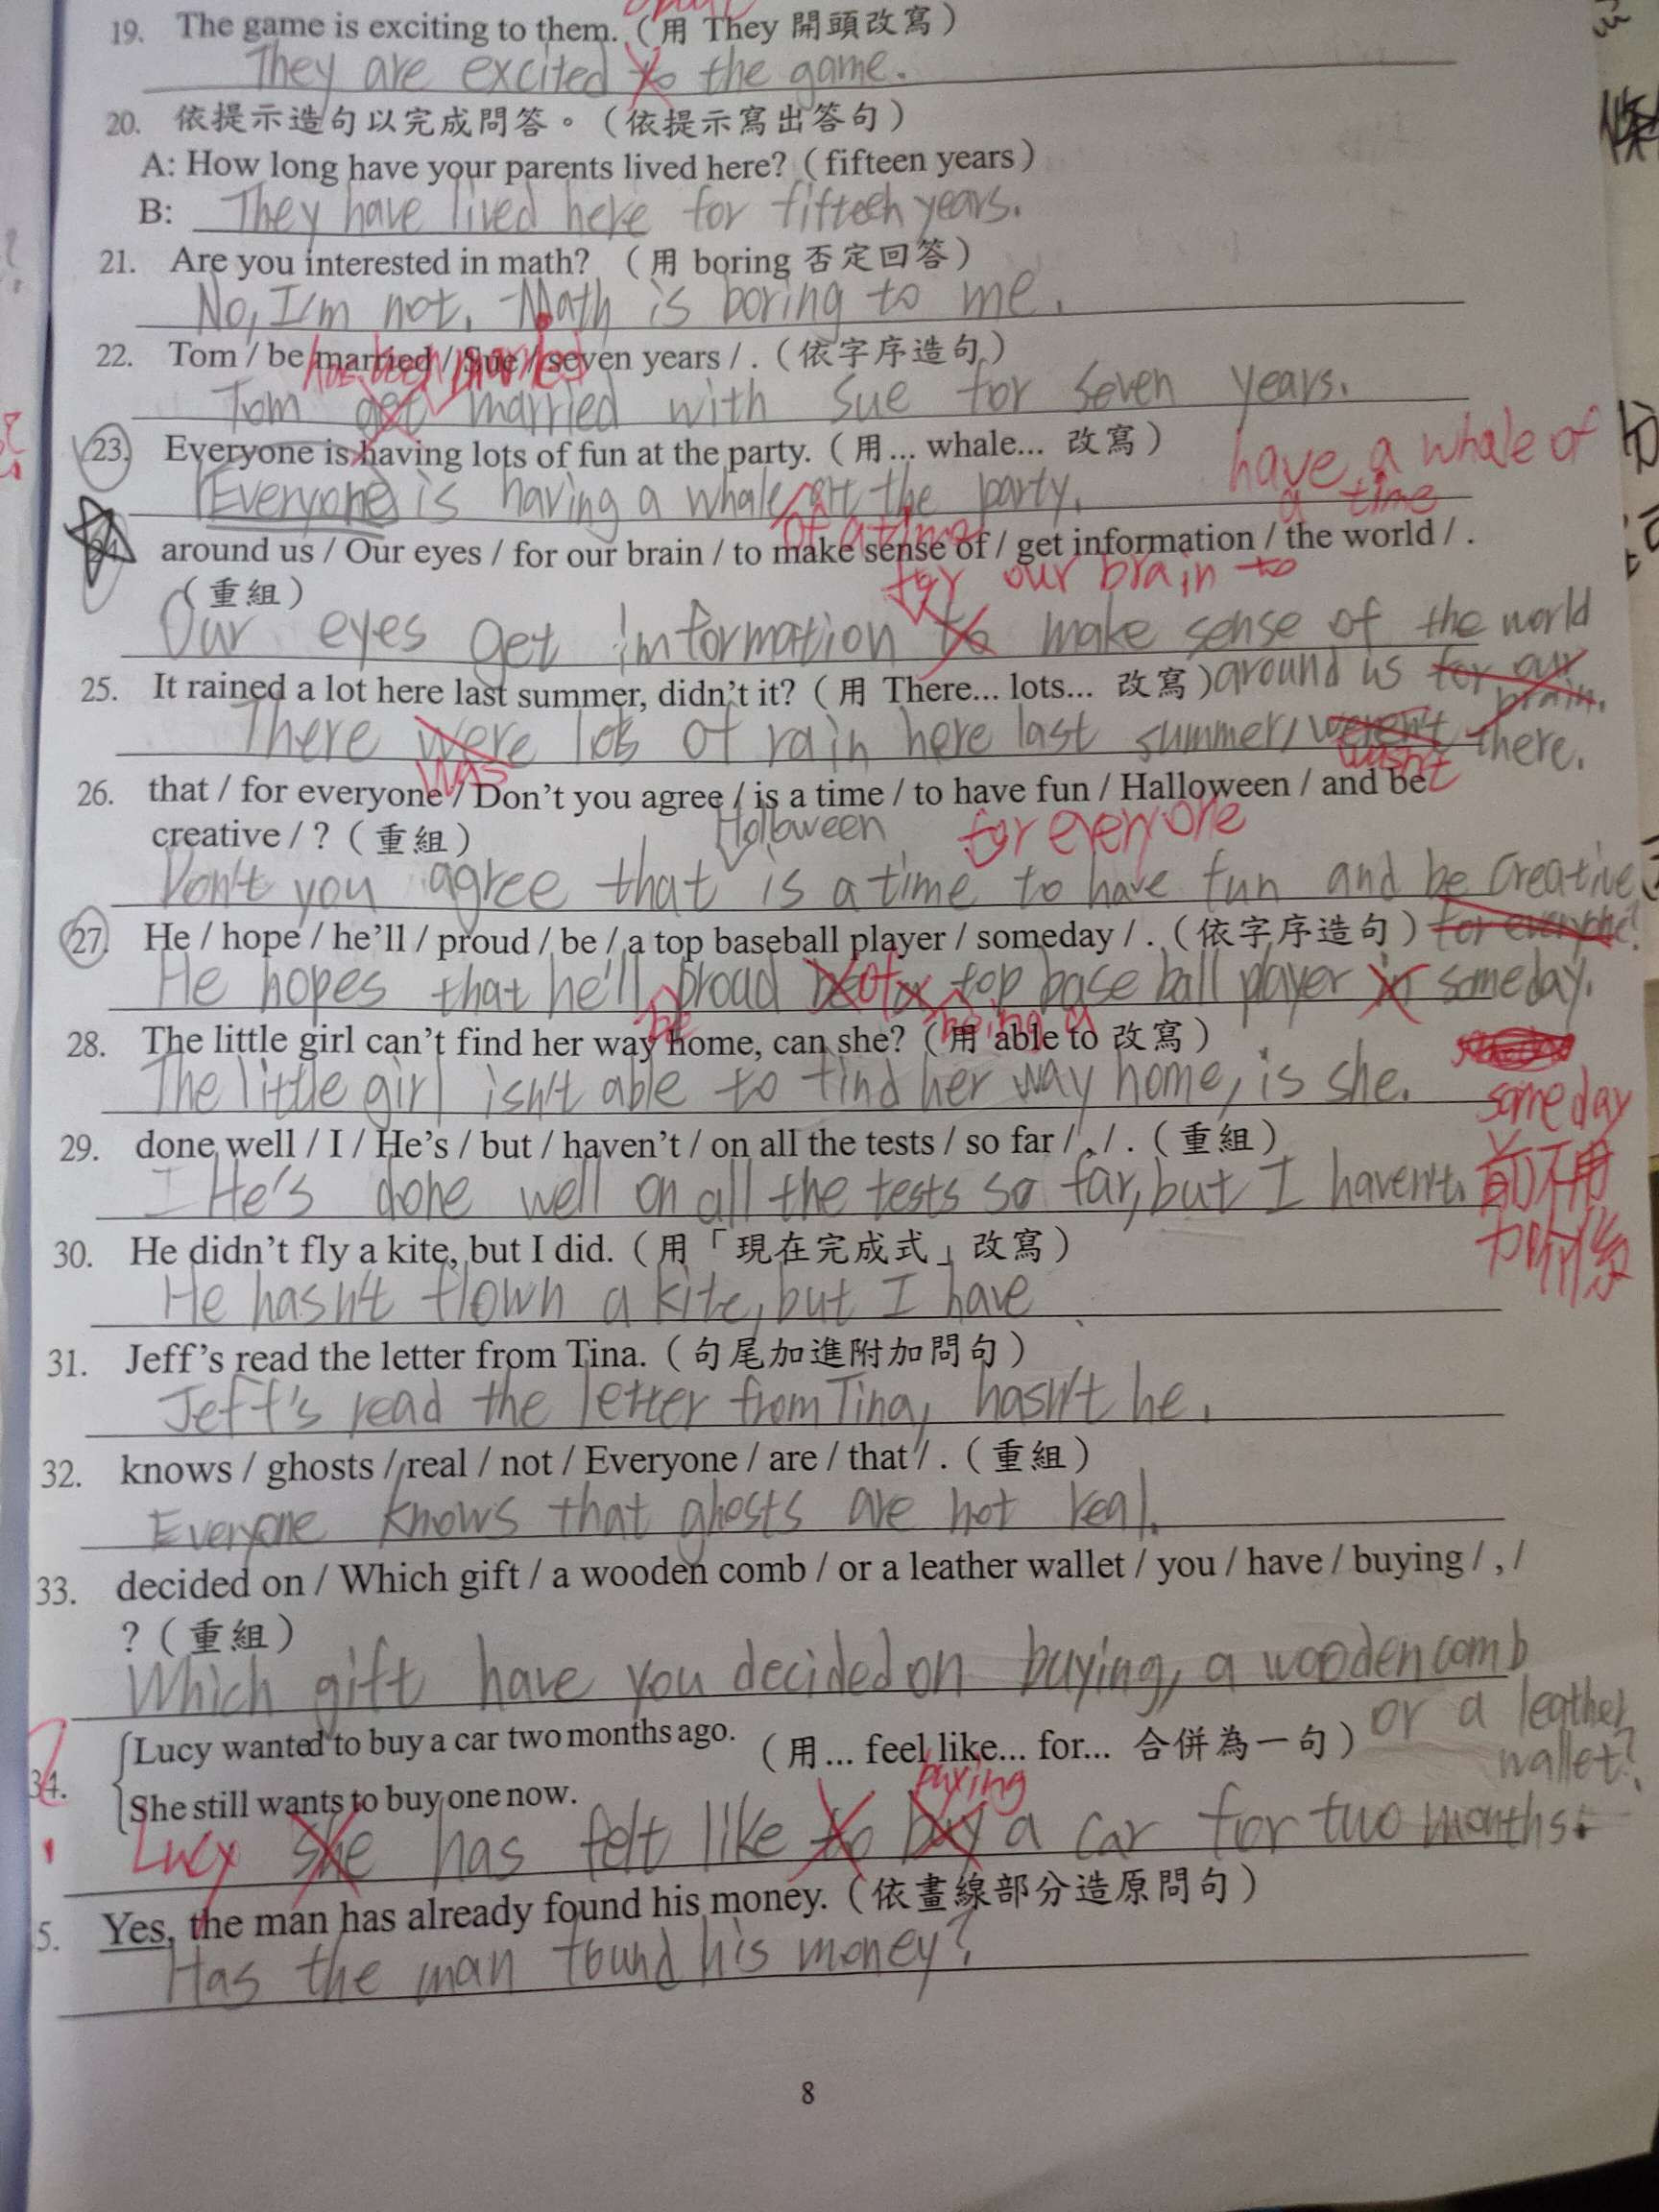 19. The game is exciting to them.（用 They 開頭改寫）
They are excited to the game.
20. 依提示造句以完成問答。（依提示寫出答句）
A: How long have your parents lived here?（fifteen years）
B: They have lived here for fifteen years.
21. Are you interested in math?（用 boring 否定回答）
No, I'm not, Math is boring to me.
22. Tom / be married / Sue / seven years / .（依字序造句）
has been married
Tom get married with Sue for seven years.
23. Everyone is having lots of fun at the party.（用... whale... 改寫）
have a whale of
a time
Everyone is having a whale at the party.
of a time
around us / Our eyes / for our brain / to make sense of / get information / the world / .
（重組）
for our brain to
Our eyes get information to make sense of the world
around us for our
brain.
25. It rained a lot here last summer, didn't it?（用 There... lots... 改寫）
There were lots of rain here last summer, weren't there.
was wasn't
26. that / for everyone / Don't you agree / is a time / to have fun / Halloween / and be
creative / ?（重組）
Holloween for everyone
Don't you agree that is a time to have fun and be creative
for everyone?
27. He / hope / he'll / proud / be / a top baseball player / someday / .（依字序造句）
He hopes that he'll proud of top base ball player in someday.
be being a
28. The little girl can't find her way home, can she?（用 able to 改寫）
The little girl isn't able to find her way home, is she.
someday
前不用
加介係
29. done well / I / He's / but / haven't / on all the tests / so far / , / .（重組）
He's done well on all the tests so far, but I haven't.
30. He didn't fly a kite, but I did.（用「現在完成式」改寫）
He hasn't flown a kite, but I have
31. Jeff's read the letter from Tina.（句尾加進附加問句）
Jeff's read the letter from Tina, hasn't he.
32. knows / ghosts / real / not / Everyone / are / that / .（重組）
Everyone knows that ghosts are not real.
33. decided on / Which gift / a wooden comb / or a leather wallet / you / have / buying / , /
?（重組）
Which gift have you decided on buying, a wooden comb
or a leather
wallet?
34. Lucy wanted to buy a car two months ago.
She still wants to buy one now.
（用... feel like... for... 合併為一句）
buying
Lucy she has felt like to buy a car for two months.
5. Yes, the man has already found his money.（依畫線部分造原問句）
Has the man found his money?
8